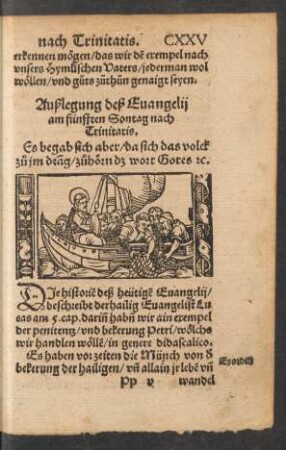 nach Trinitatis. CXXV
erkennen mögen/das wir dē exempel nach
vnsers Hymlischen Vaters/jederman wol
wöllen/vnd gůts zůthůn genaigt seyen.
Außlegung deß Euangelij
am fünfften Sontag nach
Trinitatis.
Es begab sich aber/da sich das volck
zů jm drāg/zůhörn dz wort Gotes ꝛc.
DJe historiē deß heütigē Euangelij/
beschreibt der hailig Euangelist Lu
cas am 5. cap. dariñ habñ wir ain exempel
der penitentz/vnd bekerung Petri/wölchs
wir handlen wöllē/in genere didascalico.
Es haben vor zeiten die Münch von d̕
bekerung der hailigen/ vñ allain jr lebē vñ
Exordiū
Pp v wandel